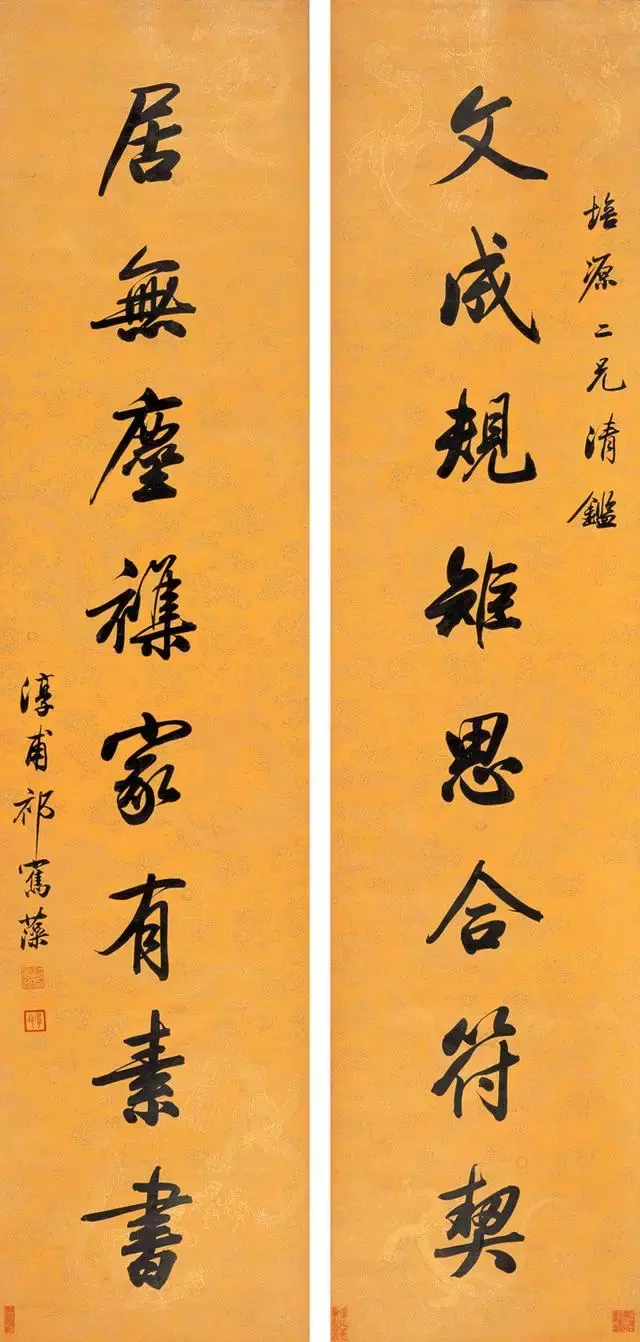 培源二兄清鑑
文成規矩思合符契
居無塵襍家有素書
淳甫祁寯藻